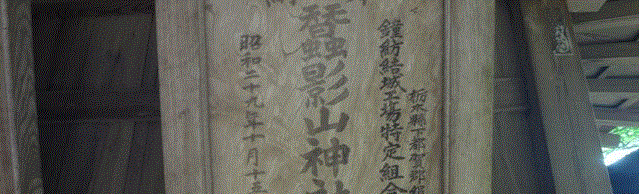 栃木縣下都賀郡絹
鐘紡結城工場特定組合
蠶影山神社
昭和二十九年十月十五